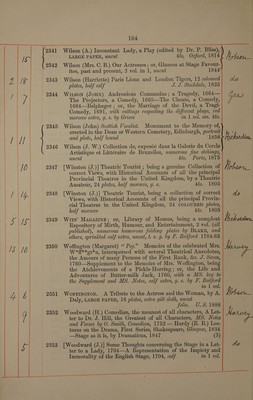 184
2341 Wilson (A.) Inconstant Lady, a Play (edited by Dr. P. Bliss),
LARGE PAPER, uncut 4to. Oxford, 1814
2342 Wilson (Mrs. C. B.) Our Actresses; or, Glances at Stage Favour-
ites, past and present, 2 vol. in 1, uncut 1844
2343 Wilson (Harriette) Paris Lions and London Tigers, 12 coloured
plates, half calf J. J. Stockdale, 1825
2344 WILSON (JOHN) Andronicus Commenius; a Tragedy, 1664—
The Projectors, a Comedy, 1665—The Cheats, a Comedy,
1684—Belphegor; or, the Marriage of the Devil, a Tragi-
Comedy, 1691, with cuttings respecting the different plays, red
morocco extra, g. e. by Grieve in 1 vol. sm. 4to.
2345 Wilson (John) Scottish Vocalist. Monument to the Memory of,
erected in the Dean or Western Cemetery, Edinburgh, portrait
and plate, half bound 1858
2346 Wilson (J. W.) Collection de, exposée dans la Galerie du Cercle
Artistique et Littéraire de Bruxelles, numerous fine etchings,
uncut 4to. Paris, 1873
2347 [Winston (J.)] Theatric Tourist; being a genuine Collection of
correct Views, with Historical Accounts of all the principal
Provincial Theatres in the United Kingdom, by a Theatric
Amateur, 24 plates, half morocco, g. e. 4to. 1805
2348 [Winston (J.)] Theatric Tourist, being a collection of correct
Views, with Historical Accounts of all the principal Provin-
cial Theatres in the United Kingdom, 24 COLOURED plates,
half morocco 4to. 1805
2349 WITS' MAGAZINE; or, Library of Momus, being a complete
Repository of Mirth, Humour, and Entertainment, 2 vol. (all
published), numerous humorous folding plates by BLAKE, and
others, portrait added extra, morocco, g. e. by F. Bedford 1784
2350 Woffington (Margaret) "Peg." Memoirs of the celebrated Mrs.
W*ff**gt*n, interspersed with several Theatrical Anecdotes,
the Amours of many Persons of the First Rank, &c. J. Swan,
1760—Supplement to the Memoirs of Mrs. Woffington, being
the Atchievements of a Pickle-Herring; or, the Life and
Adventures of Butter-milk Jack, 1760, with a MS. key to
the Supplement and MS. Notes, calf extra, g. e. by F. Bedford
in 1 vol.
2351 WOFFINGTON. A Tribute to the Actress and the Woman, by A.
Daly, LARGE PAPER, 16 plates, extra gilt cloth, uncut
folio. U. S. 1888
2352 Woodward (H.) Comedian, the meanest of all characters, A Let-
ter to Dr. J. Hill, the Greatest of all Characters, MS. Notes
and Fines by O. Smith, Comedian, 1752 — Hardy (E. R.) Lec-
tures on the Drama, First Series, Shakespeare, Glasgow, 1834
—Stage as it is, by Dramaticus, 1847 (3)
2353 [Woodward (J.)] Some Thoughts concerning the Stage in a Let-
ter to a Lady, 1704—A Representation of the Impiety and
Immorality of the English Stage, 1704, calf in 1 vol.